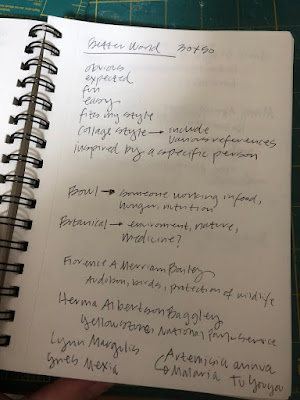 Better World 30x30
obvious
expected
fun
easy
fits my style
Collage style → include
various references
inspired by a specific person
Bowl → someone working in food,
hunger, nutrition
Botanical → enviroment, nature,
medicine?
Florence A Merriam Bailey
Audobon, birds, protection of wildlife
Herma Albertson Baggley
Yellowstone, National Park Service
Lynn Margulis
Ynes Mexia
Artemisia annua
Malaria Tu Youyou